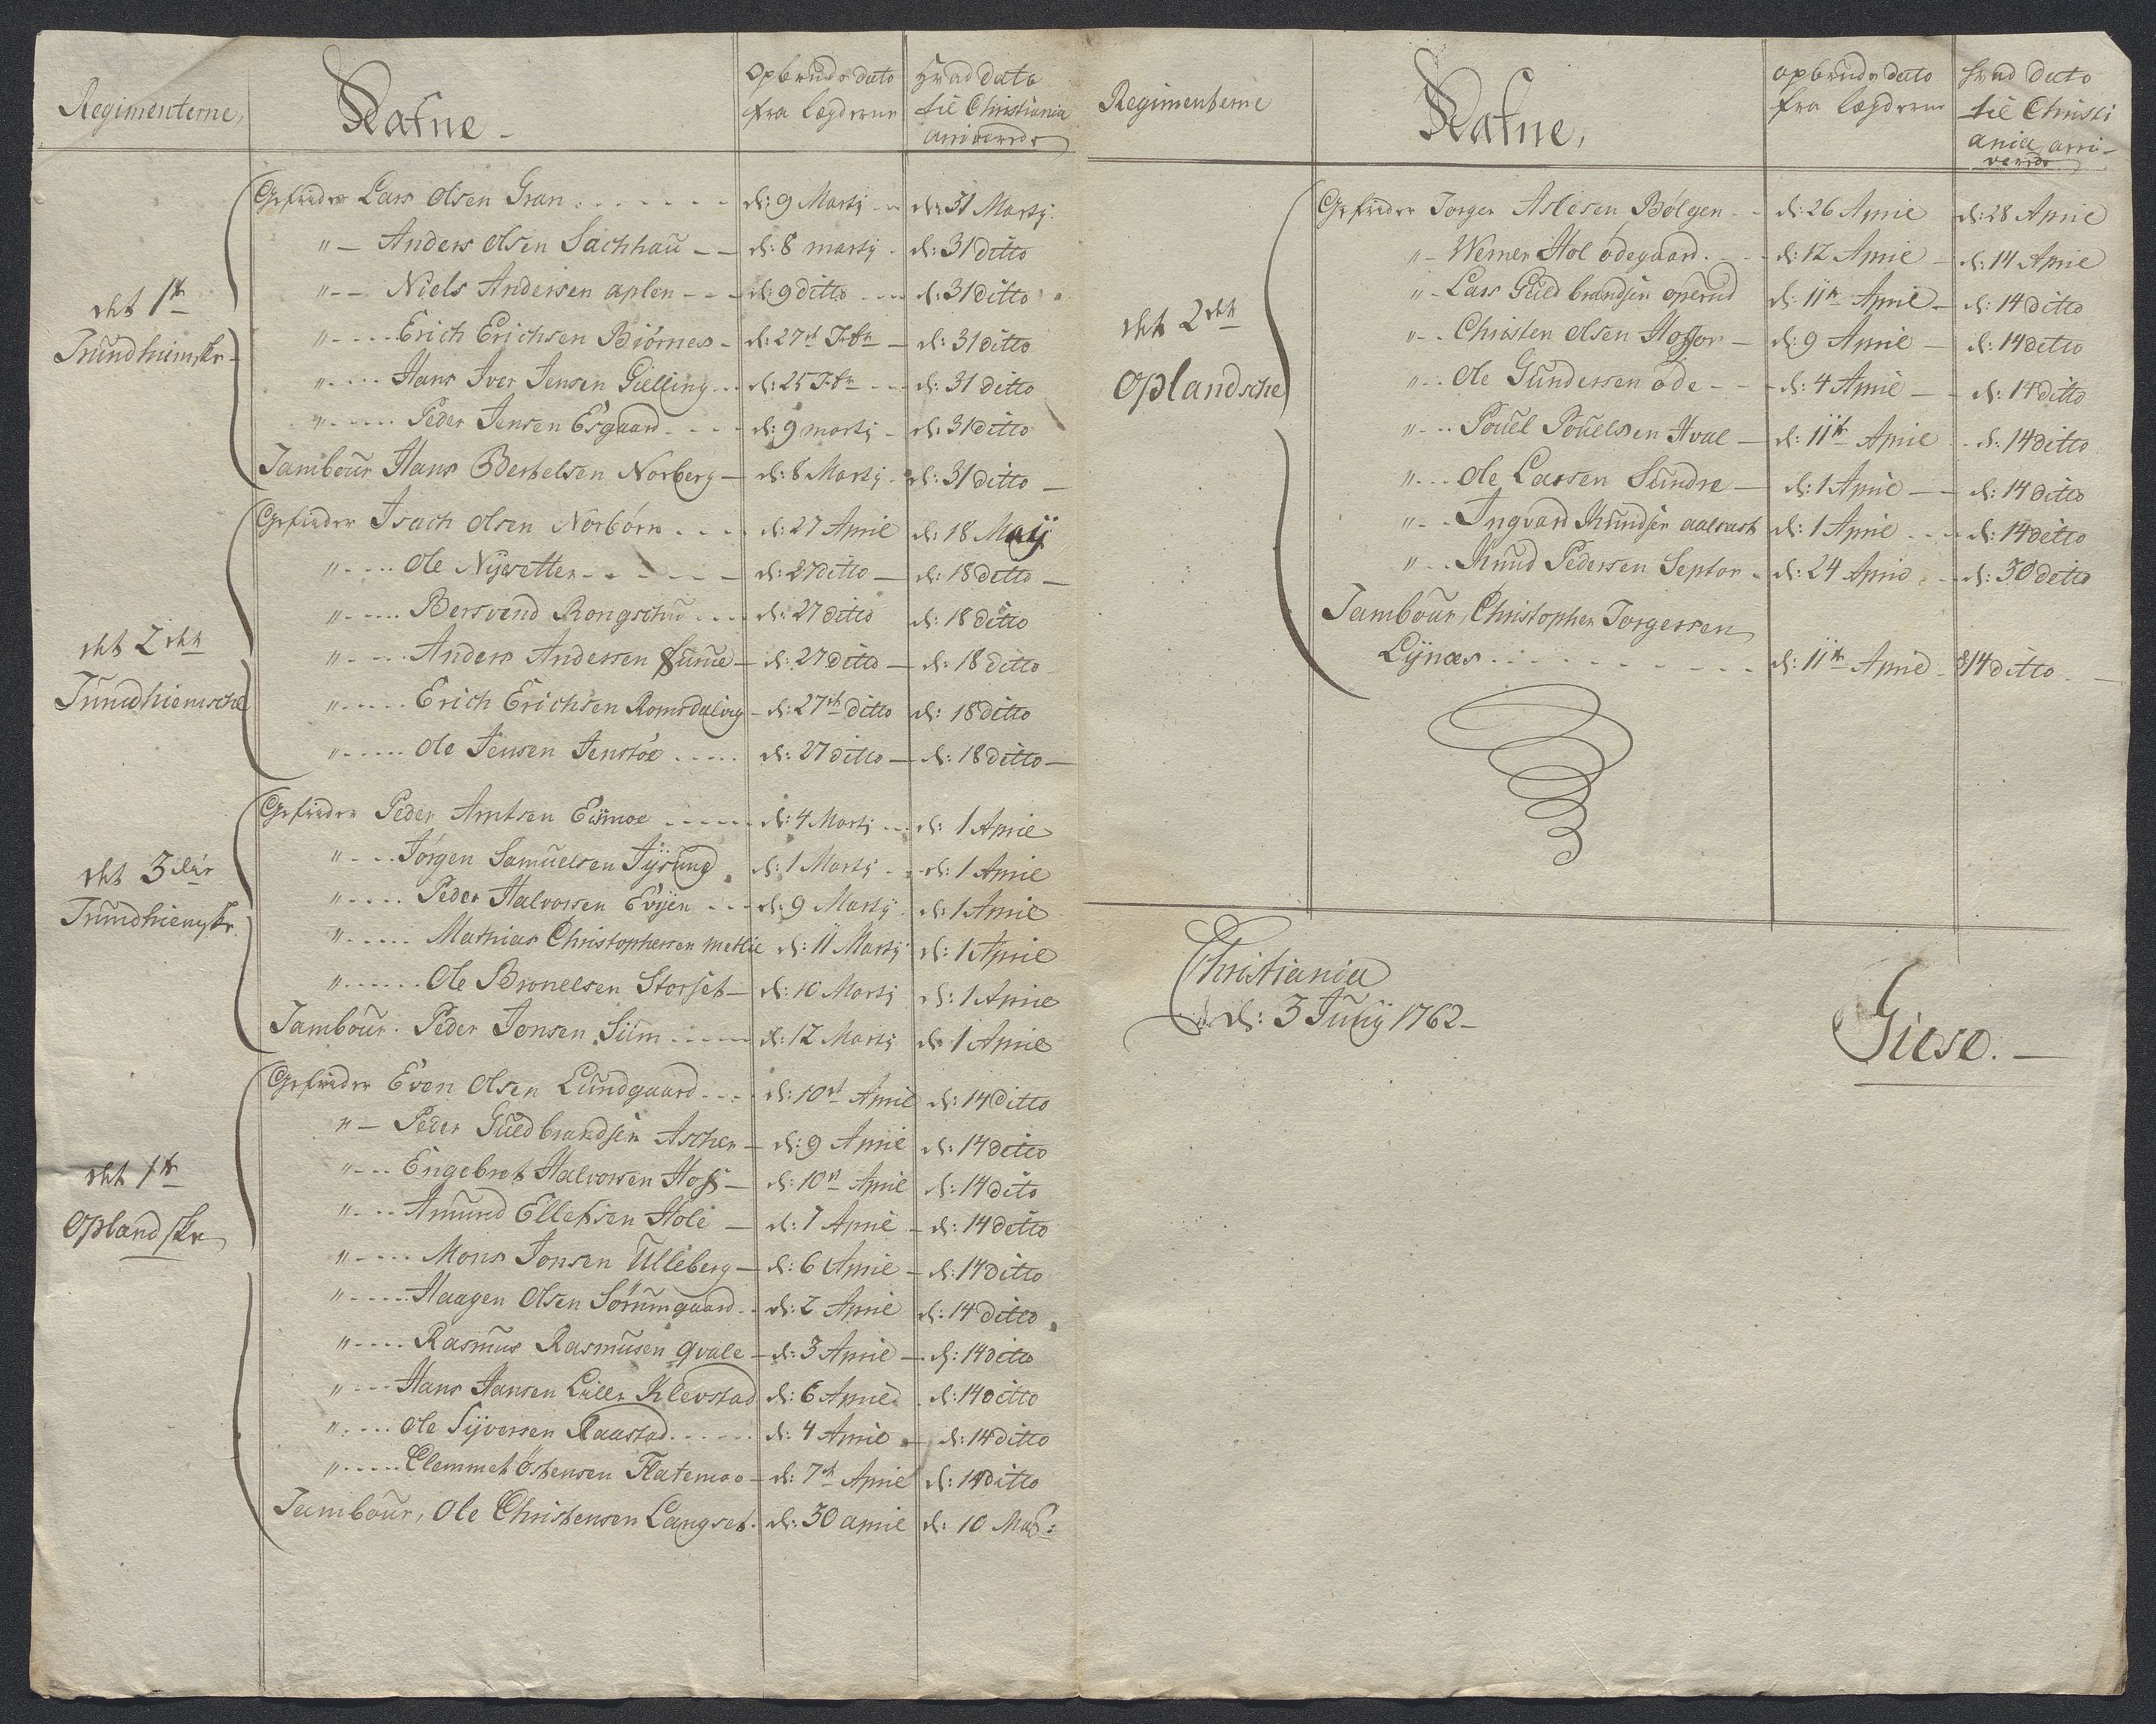 Regimenterne, Nafne - opbruds dato Hvad dato
fra Lægderne til Christiania
arriverede
det 1te Trundhiemske
Gefrider Lars Olsen Gran d: 9 Martij d: 31 Martij
" Anders Olsen Sachhau d: 8 martij d: 31 ditto
" Niels Andersen aplen d: 9 ditto d: 31 ditto
" Erich Erichsen Biörnes d: 27de Febr d: 31 ditto
" Hans Iver Jensen Gielling d: 25 Febr d: 31 ditto
" Peder Jensen Esgaard d: 9 martij d: 31 ditto
Tambour Hans Berthelsen Norberg d: 8 Martij d: 31 ditto
det 2det Trundhiemsche
Gefrider Isach Olsen Norbörn d: 27 April d: 18 Maij
" Ole Nysetter d: 27 ditto d: 18 ditto
" Bersvend Rongschu d: 27 ditto d: 18 ditto
" Anders Andersen d: 27 ditto d: 18 ditto
" Erich Erichsen Romsdaling d: 27de ditto d: 18 ditto
" Ole Jensen Jenstöe d: 27 ditto d: 18 ditto
det 3die Trundhiemske
Gefrider Peder Arntsen Eümoe d: 4 Martij d: 1 April
" Jörgen Samuelsen d: 1 Martij d: 1 April
" Peder Halvorsen Evijen d: 9 Martij d: 1 April
" Mathias Christophersen metlie d: 11 Martij d: 1 April
" Ole Storset d: 10 Martij d: 1 April
Tambour. Peder Jonsen Siim d: 12 Martij d: 1 April
det 1te Oplandske
Gefrider Even Olsen Lundgaard d: 10de April d: 14 Ditto
" Peder Guldbrandsen Ascher d: 9 April d: 14 ditto
" Engebret Halvorsen Hoff d: 10de April d: 14 dito
" Amund Ellefsen Hole d: 7 April d: 14 ditto
" Mons Jonsen Ulleberg d: 6 April d: 14 ditto
" Haagen Olsen Sörumgaard d: 2 April d: 14 ditto
" Rasmus Rasmusen qvale d: 3 April d: 14 ditto
" Hans Hansen Lille Klevstad d: 6 April d: 14 ditto
" Ole Syversen Raastad d: 4 April d: 14 ditto
" Clemmet Östensen Flatemoe d: 7de April d: 14 ditto
Tambour, Ole Christensen Langset d: 30 april d: 10 Maj:
Regimenterne Nafne, opbruds dato hvad dato
fra Lægderne til Christi
ania arri-
verede
det 2det Oplandsche
Gefrider Jorgen Aslesen Bölgen d: 26 April d: 28 April
" Werner Hol ödegaard d: 12 April d: 14 April
" Lars Guldbrandsen operud d: 11te April d: 14 ditto
" Christen Olsen Hoffor d: 9 April d: 14 ditto
" Ole Gundersen öde d: 4 April d: 14 ditto
" Pouel Pouelssen Hval d: 11te April d: 14 ditto
" Ole Larsen Sundre d: 1 April d: 14 ditto
" Ingvard Knudsen d: 1 April d: 14 ditto
" Knud Pedersen Septor d: 24 April d: 30 ditto
Tambour, Christopher Jorgersen
Lynæs d: 11te April d: 14 ditto
Christiania
d: 3 Junij 1762 -
Giese. -